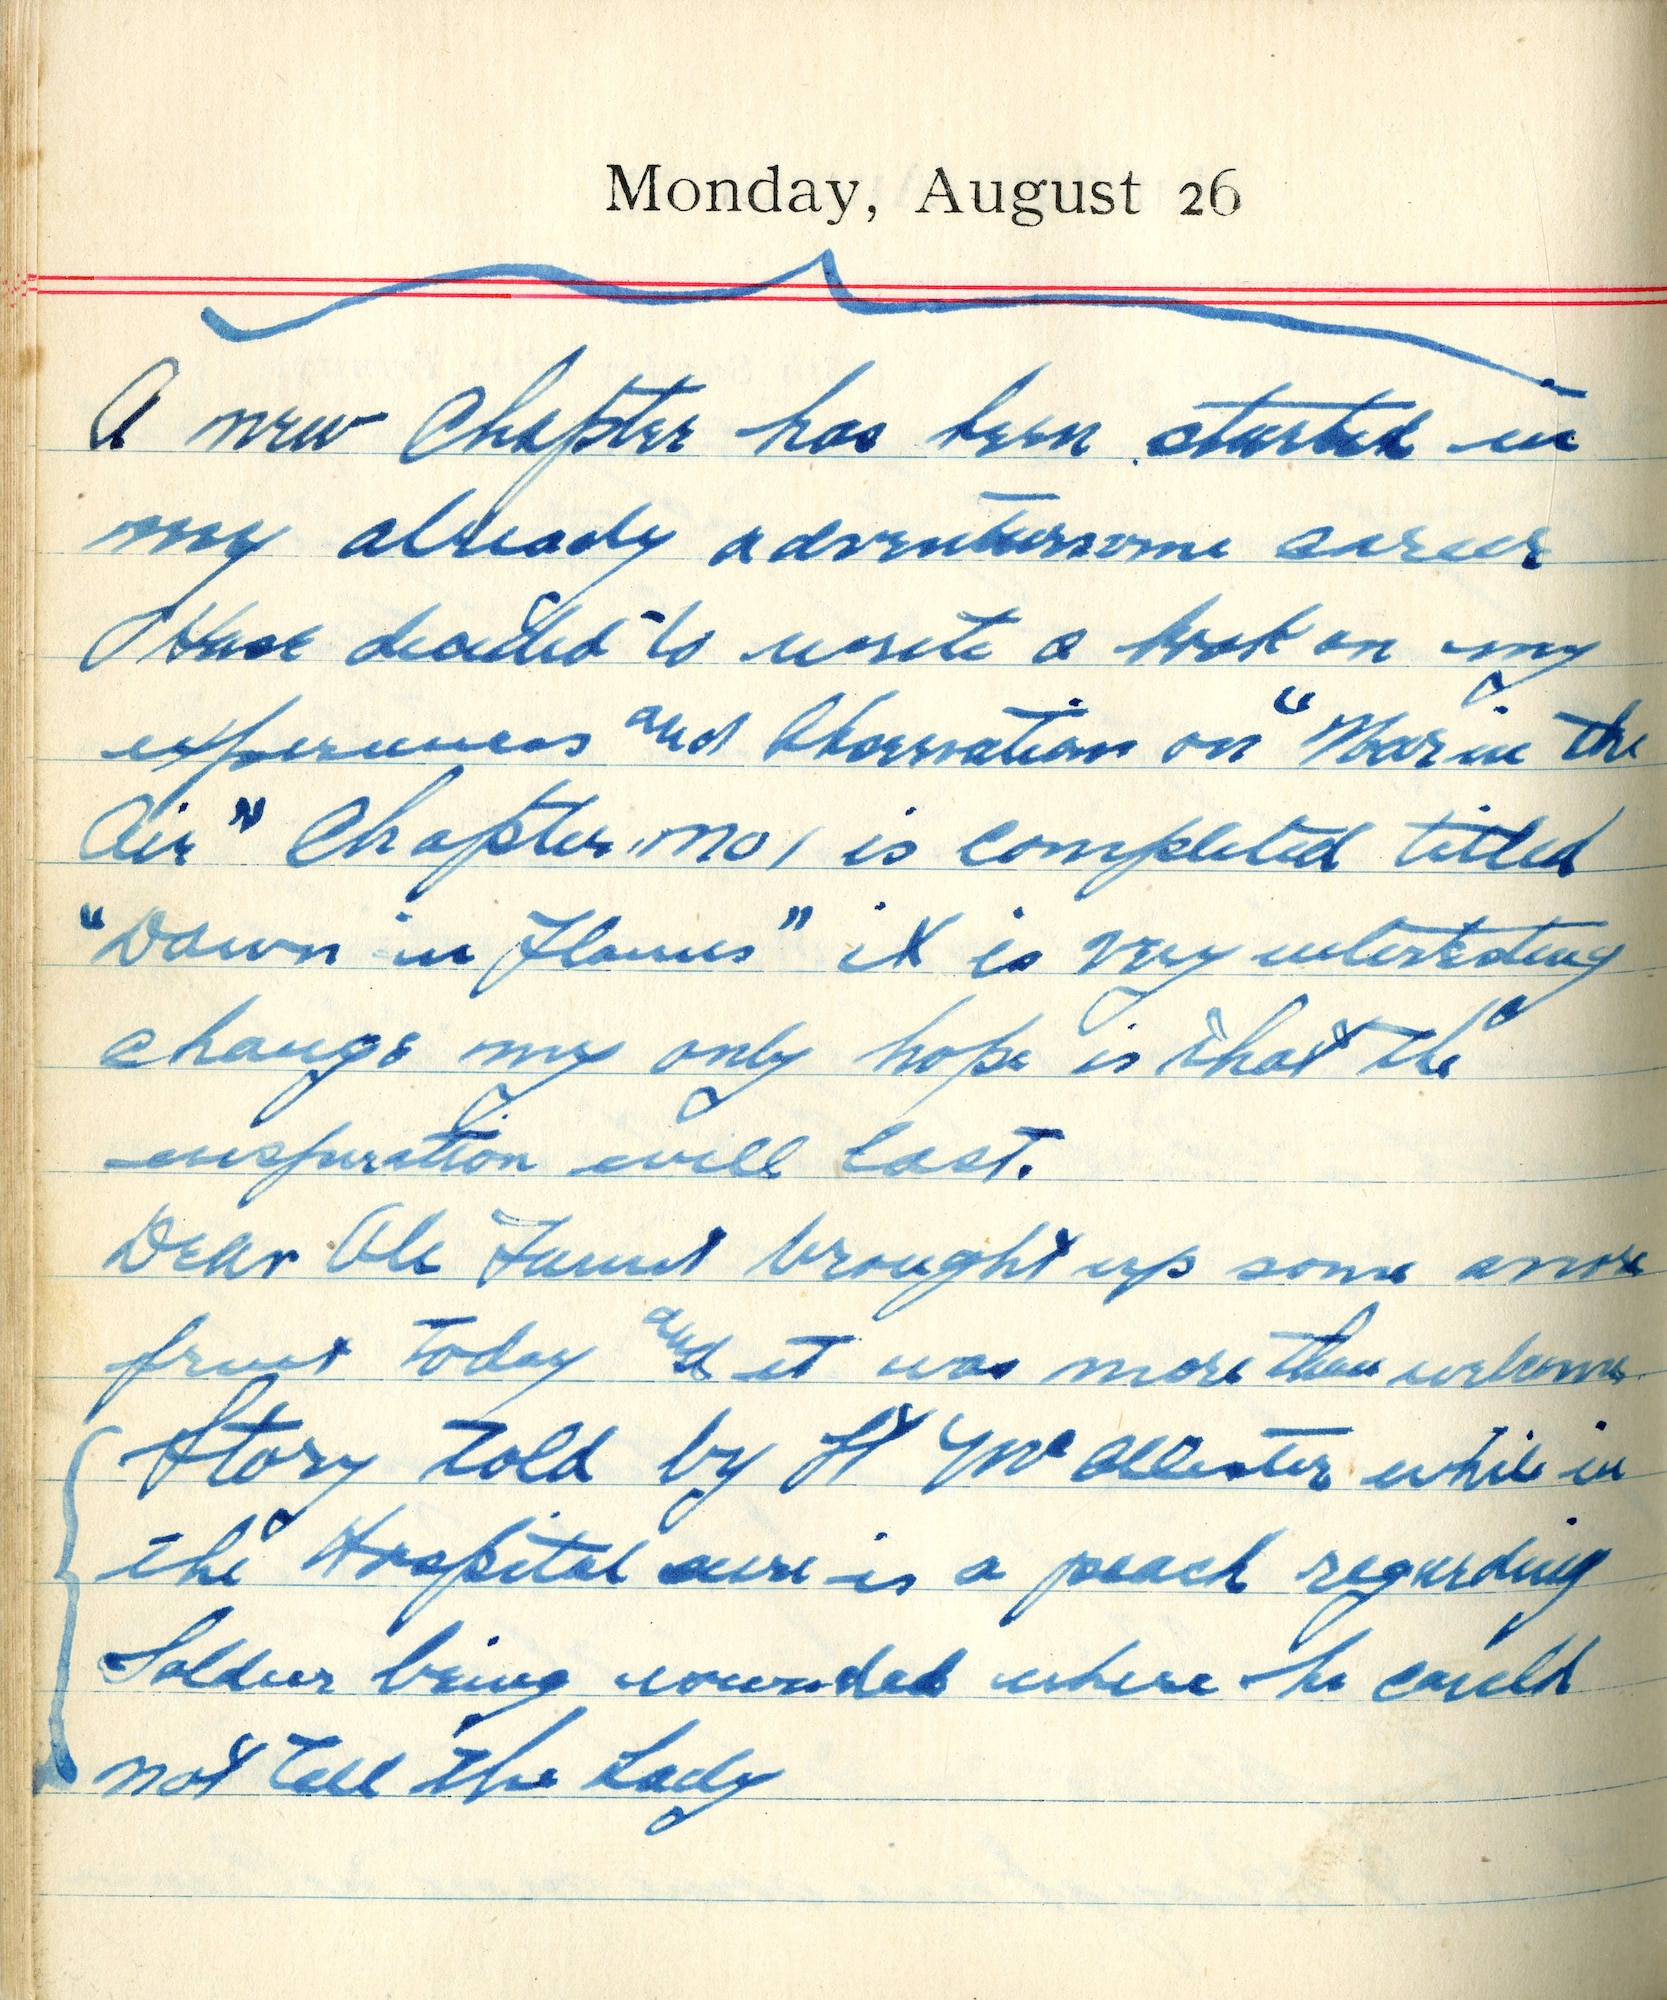 Monday, August 26
A new Chapter has been started in
my already adventuresome career
I Have decided to write a book on my
experiences and Observations on "War in the
Air" Chapter No 1 is completed titled
"Down in Flames" it is very interesting
change my only hope is that the
inspiration will last.
Dear Ole brought up some more
fruit today and it was more than welcome
Story told by Lt McAllester while in
the Hospital sure is a peach regarding
Soldier being wounded where he could
not tell the Lady